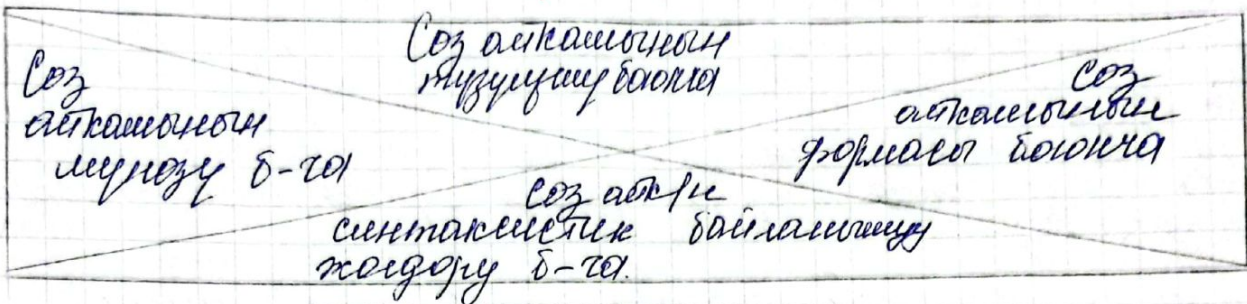 Соз айкашынын
түзүлүшү боюнча
Соз
айкашынын
мүнөзү б-ча
Соз
айкашынын
формасы боюнча
Соз айк/н
синтаксистик байланышуу
жолдору б-ча.